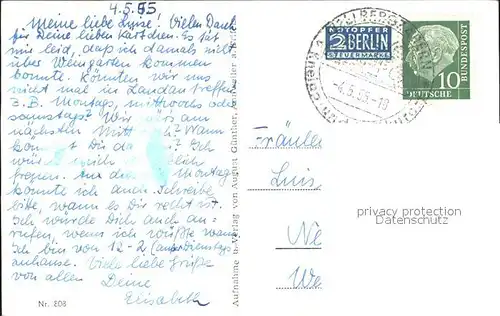 4.5.55
Meine liebe Luise! Vielen Dank
für Deine lieben Kärtchen. Es tut
mir leid, daß ich damals nicht
über Weingarten kommen
konnte. Könnten wir uns
nicht mal in Landau treffen
z.B. Montags, mittwochs oder
samstags? Wir wär's am
nächsten Mitt ch? Wann
kön t Dir da ? Ich
wür lich
freuen. Montag
könnte ich auch. Schreibe
bitte, wann es Dir recht ist.
Ich würde Dich auch an=
rufen, wenn ich wüßte wann
Ich bin von 12-2 (außer Dienstag)
zuhause. Viele liebe Grüße
von allen Deine
Elisabeth
Nr. 808
Aufnahme u. Verlag von August Günther,
NOTOPFER
2 BERLIN
STEUERMARKE
-4.5.55-18
10
DEUTSCHE
BUNDESPOST
Fräulein
Luis
Ne
We
privacy protection
Datenschutz